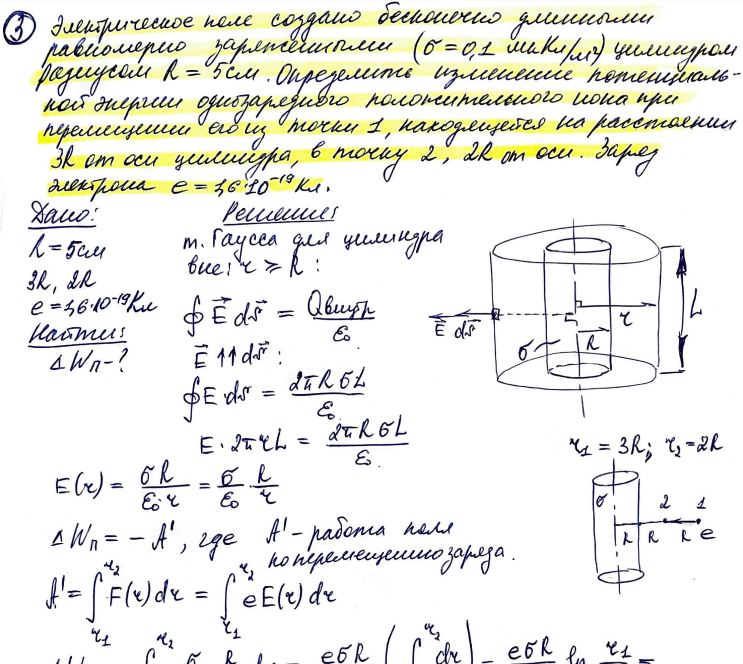 ③ Электрическое поле создано бесконечно длинными
равномерно заряженными (σ = 0,1 мкКл/м²) цилиндром
радиусом R = 5см. Определить изменение потенциаль-
ной энергии однозарядного положительного иона при
перемещении его из точки 1, находящейся на расстоянии
3R от оси цилиндра, в точку 2, 2R от оси. Заряд
электрона e = 1,6·10⁻¹⁹ Кл.
Дано:
R = 5см
3R, 2R
e = 1,6·10⁻¹⁹ Кл
Найти:
ΔWп - ?
Решение:
т. Гаусса для цилиндра
вне: r ⩾ R:
∮ E⃗ ds⃗ = Qвнутр / ε₀
E⃗ ↑↑ ds⃗ :
∮ E ds = 2πRσL / ε₀
E · 2πrL = 2πRσL / ε₀
E⃗ ds⃗
r
R
L
σ
E(r) = σR / ε₀·r = σ/ε₀ · R/r
ΔWп = - A', где A' - работа поля
по перемещению заряда.
A' = ∫ᵣ₁ʳ² F(r) dr = ∫ᵣ₁ʳ² e E(r) dr
r₁ = 3R; r₂ = 2R
σ
2 1
R R R e